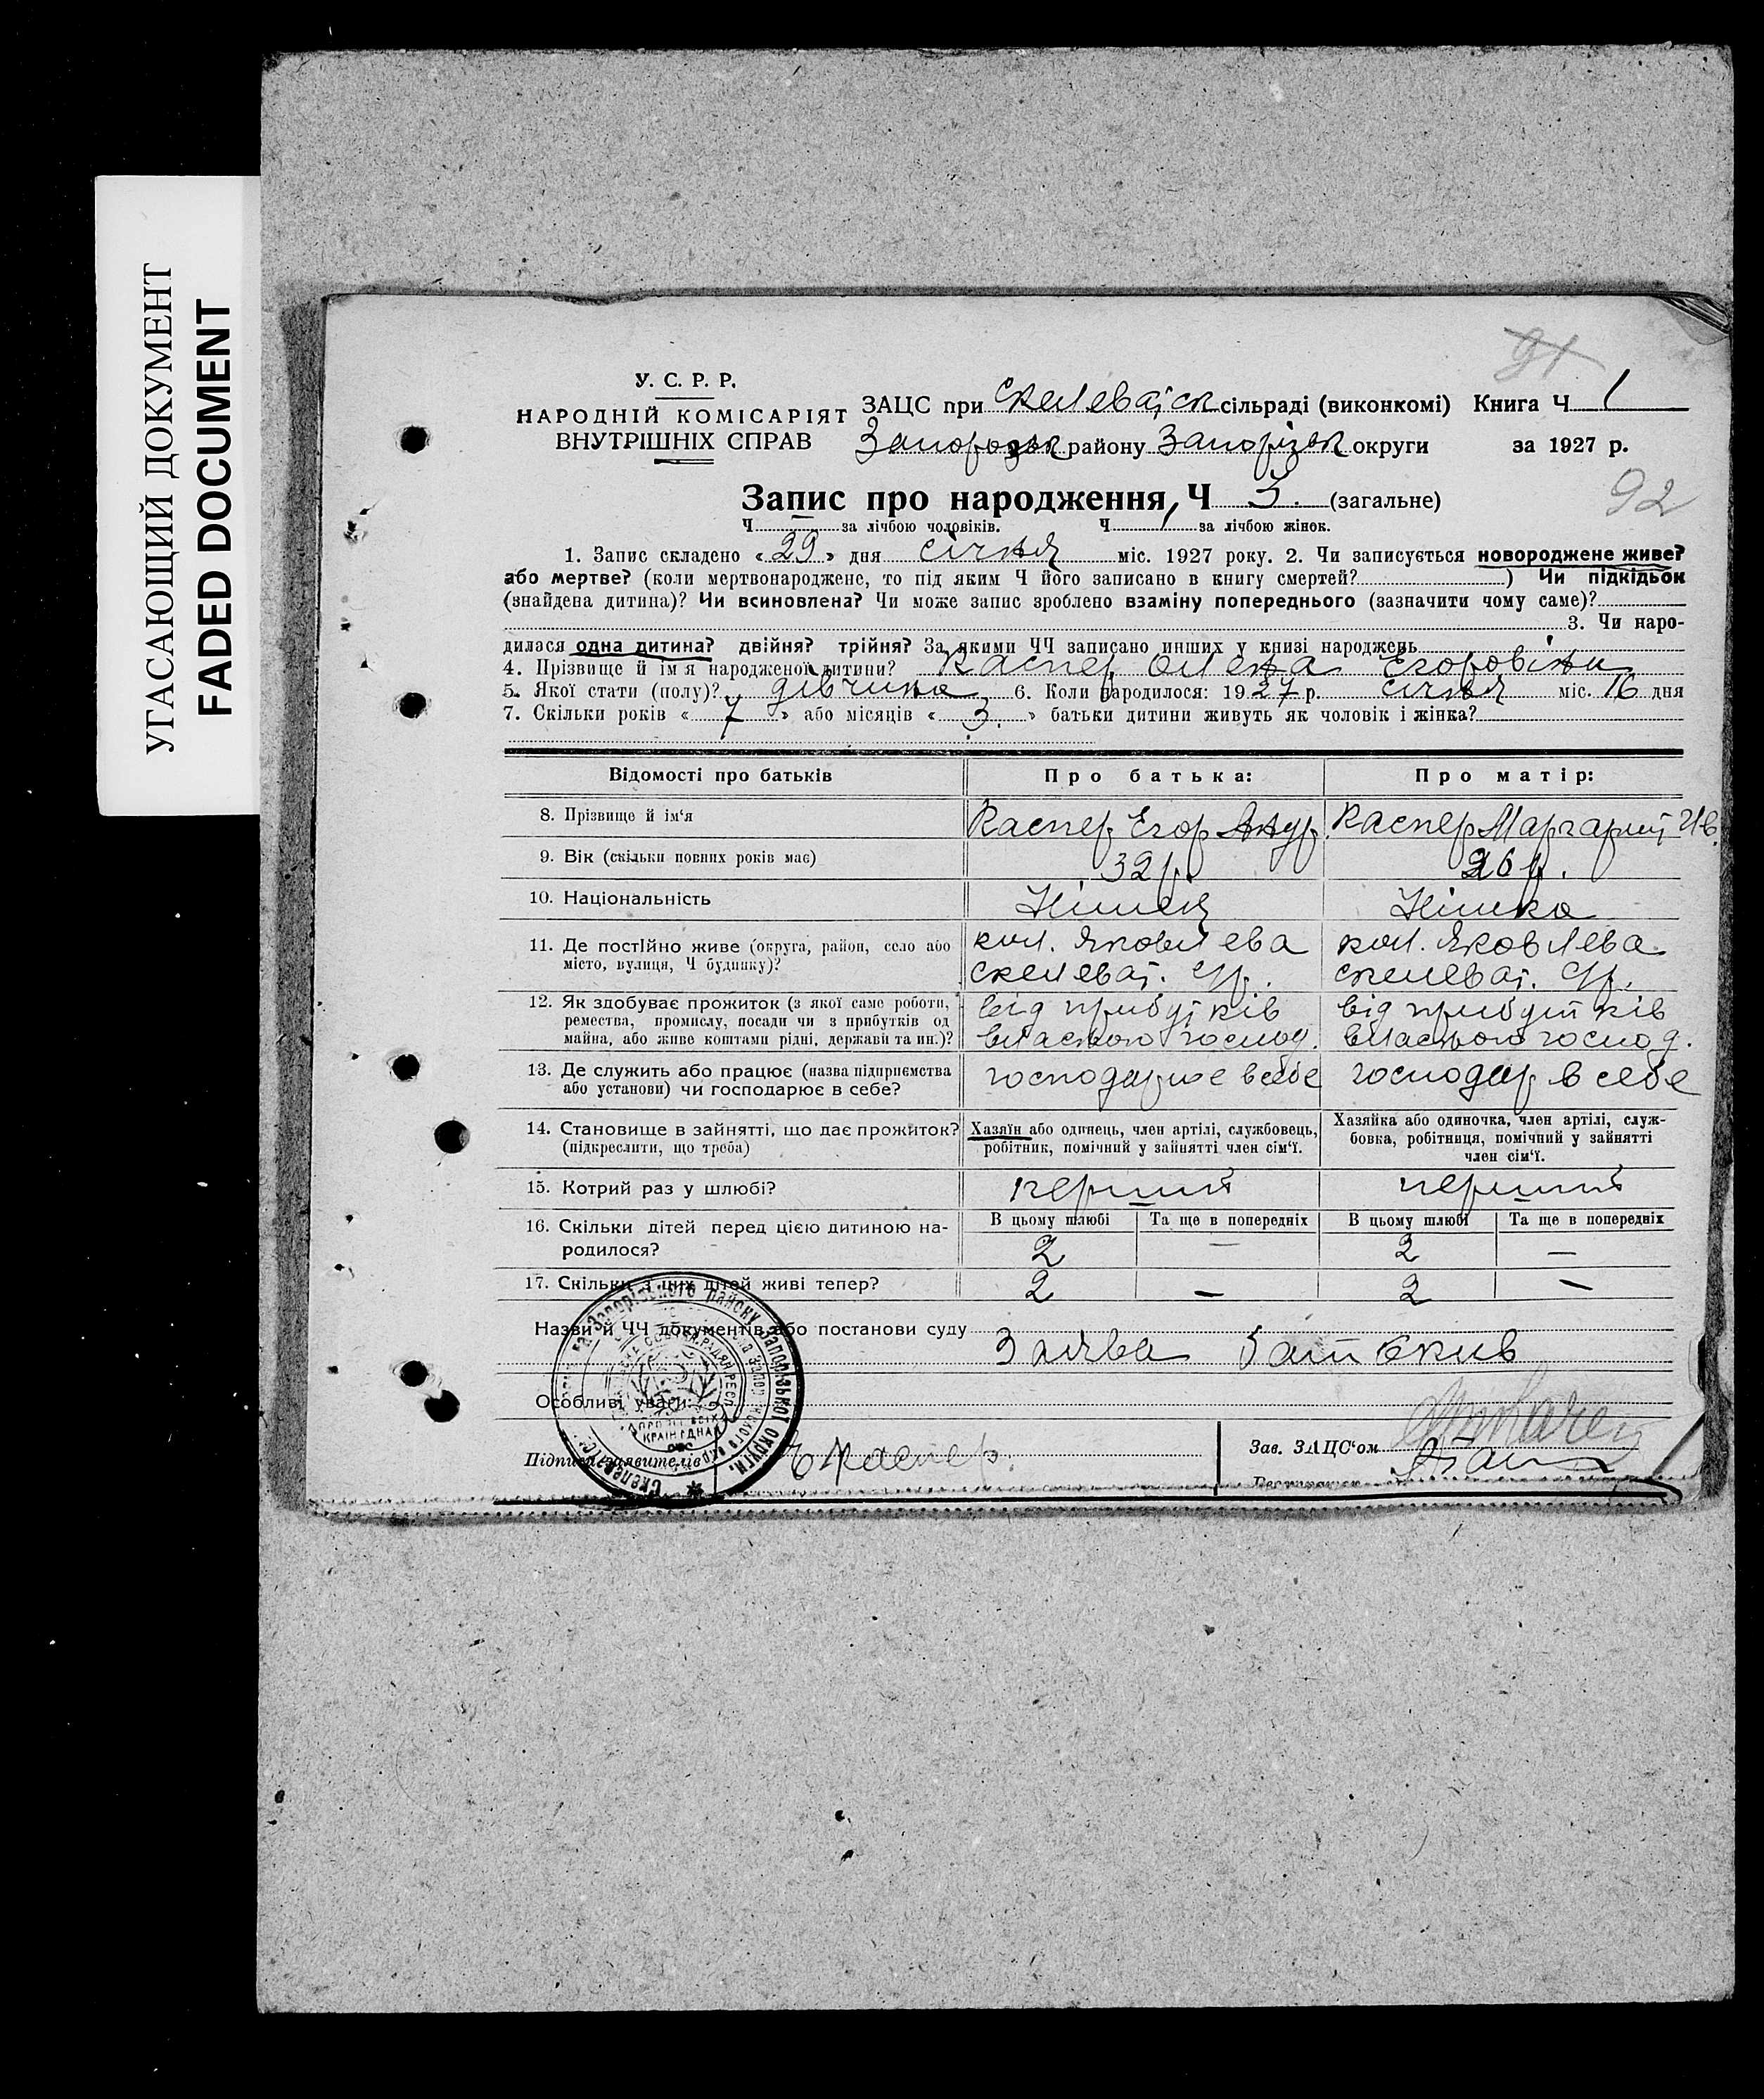 УГАСАЮЩИЙ ДОКУМЕНТ
FADED DOCUMENT
91
У. С. Р. Р.
НАРОДНІЙ КОМІСАРІЯТ
ВНУТРІШНІХ СПРАВ
ЗАЦС при Скелеватск сільраді (виконкомі) Книга Ч 1
Запорозьк району Запорізьк округи за 1927 р.
Запис про народження, Ч 3. (загальне)
92
Ч — за лічбою чоловіків. Ч 1 за лічбою жінок.
1. Запис складено «29» дня січня міс. 1927 року. 2. Чи записується новороджене живе?
або мертве? (коли мертвонароджене, то під яким Ч його записано в книгу смертей? ) Чи підкідьок
(знайдена дитина)? Чи всиновлена? Чи може запис зроблено взаміну попереднього (зазначити чому саме)?
3. Чи наро-
дилася одна дитина? двійня? трійня? За якими ЧЧ записано инших у книзі народжень
4. Прізвище й ім'я народженої дитини? Каспер Олена Егоровна
5. Якої стати (полу)? дівчина 6. Коли народилося: 1927 р. січня міс. 16 дня
7. Скільки років «7» або місяців «3.» батьки дитини живуть як чоловік і жінка?
Відомості про батьків Про батька: Про матір:
8. Прізвище й ім'я Каспер Егор Андр. Каспер Маргарит Ив.
9. Вік (скільки повних років має) 32 р. 26 р.
10. Національність Німець Німка
11. Де постійно живе (округа, район, село або кол. Яковлева кол. Яковлева
місто, вулиця, Ч будинку)? Скелеват. с/р. скелеват. с/р.
12. Як здобуває прожиток (з якої саме роботи, від прибутків від прибутків
ремества, промислу, посади чи з прибутків од
майна, або живе коштами рідні, держави та ин.)? власного господ. власного господ.
13. Де служить або працює (назва підприємства господарює в себе господар в себе
або установи) чи господарює в себе?
14. Становище в зайнятті, що дає прожиток? Хазяїн або одинець, член артілі, службовець, Хазяйка або одиночка, член артілі, служ-
(підкреслити, що треба) робітник, помічний у зайнятті член сім'ї. бовка, робітниця, помічний у зайнятті
член сім'ї.
15. Котрий раз у шлюбі? перший перший
16. Скільки дітей перед цією дитиною на- В цьому шлюбі Та ще в попередніх В цьому шлюбі Та ще в попередніх
родилося? 2 — 2 —
17. Скільки з цих дітей живі тепер? 2 — 2 —
Назви й ЧЧ документів або постанови суду
Заява батьків
Особливі уваги:
Підписи заявителів Е Каспер.
Зав. ЗАЦС'ом